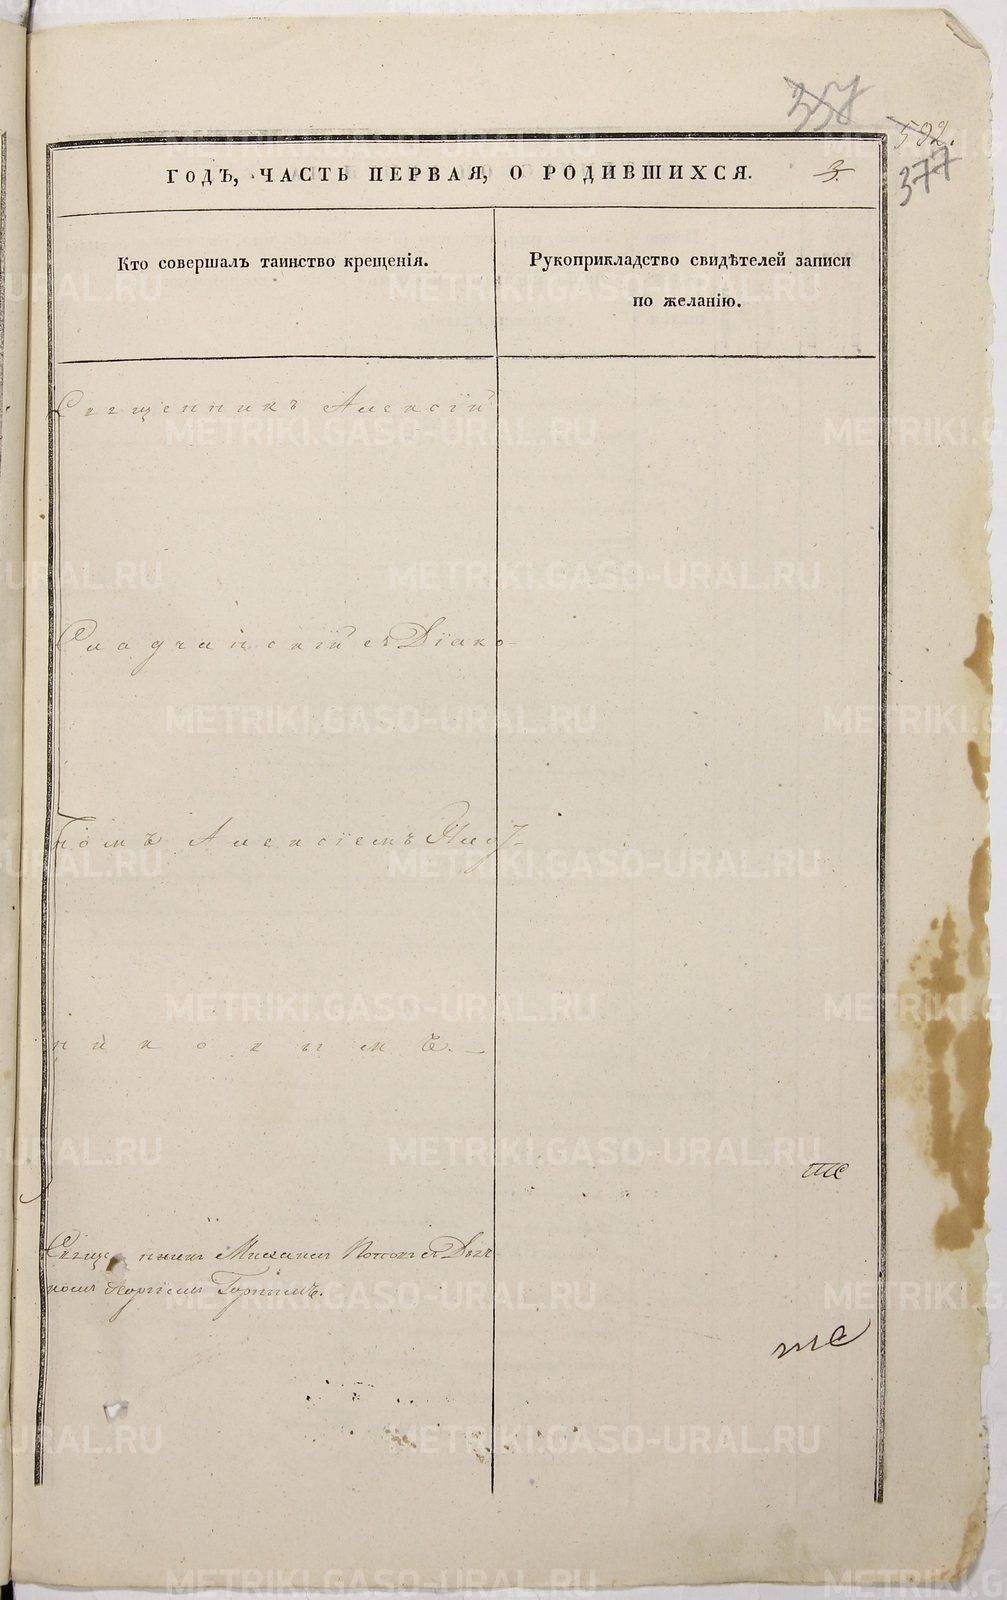 357
592.
377
ГОДЪ, ЧАСТЬ ПЕРВАЯ, О РОДИВШИХСЯ. 3.
Кто совершалъ таинство крещенія.
Рукоприкладство свидѣтелей записи
по желанію.
Священникъ Алексій
Сладчанскій съ Діако-
номъ Алексіемъ
Священникъ Михаилъ Поповъ съ Діако
номъ Георгіемъ
METRIKI.GASO-URAL.RU